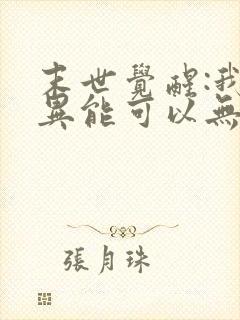 末世覺醒:我
異能可以無
張月珠